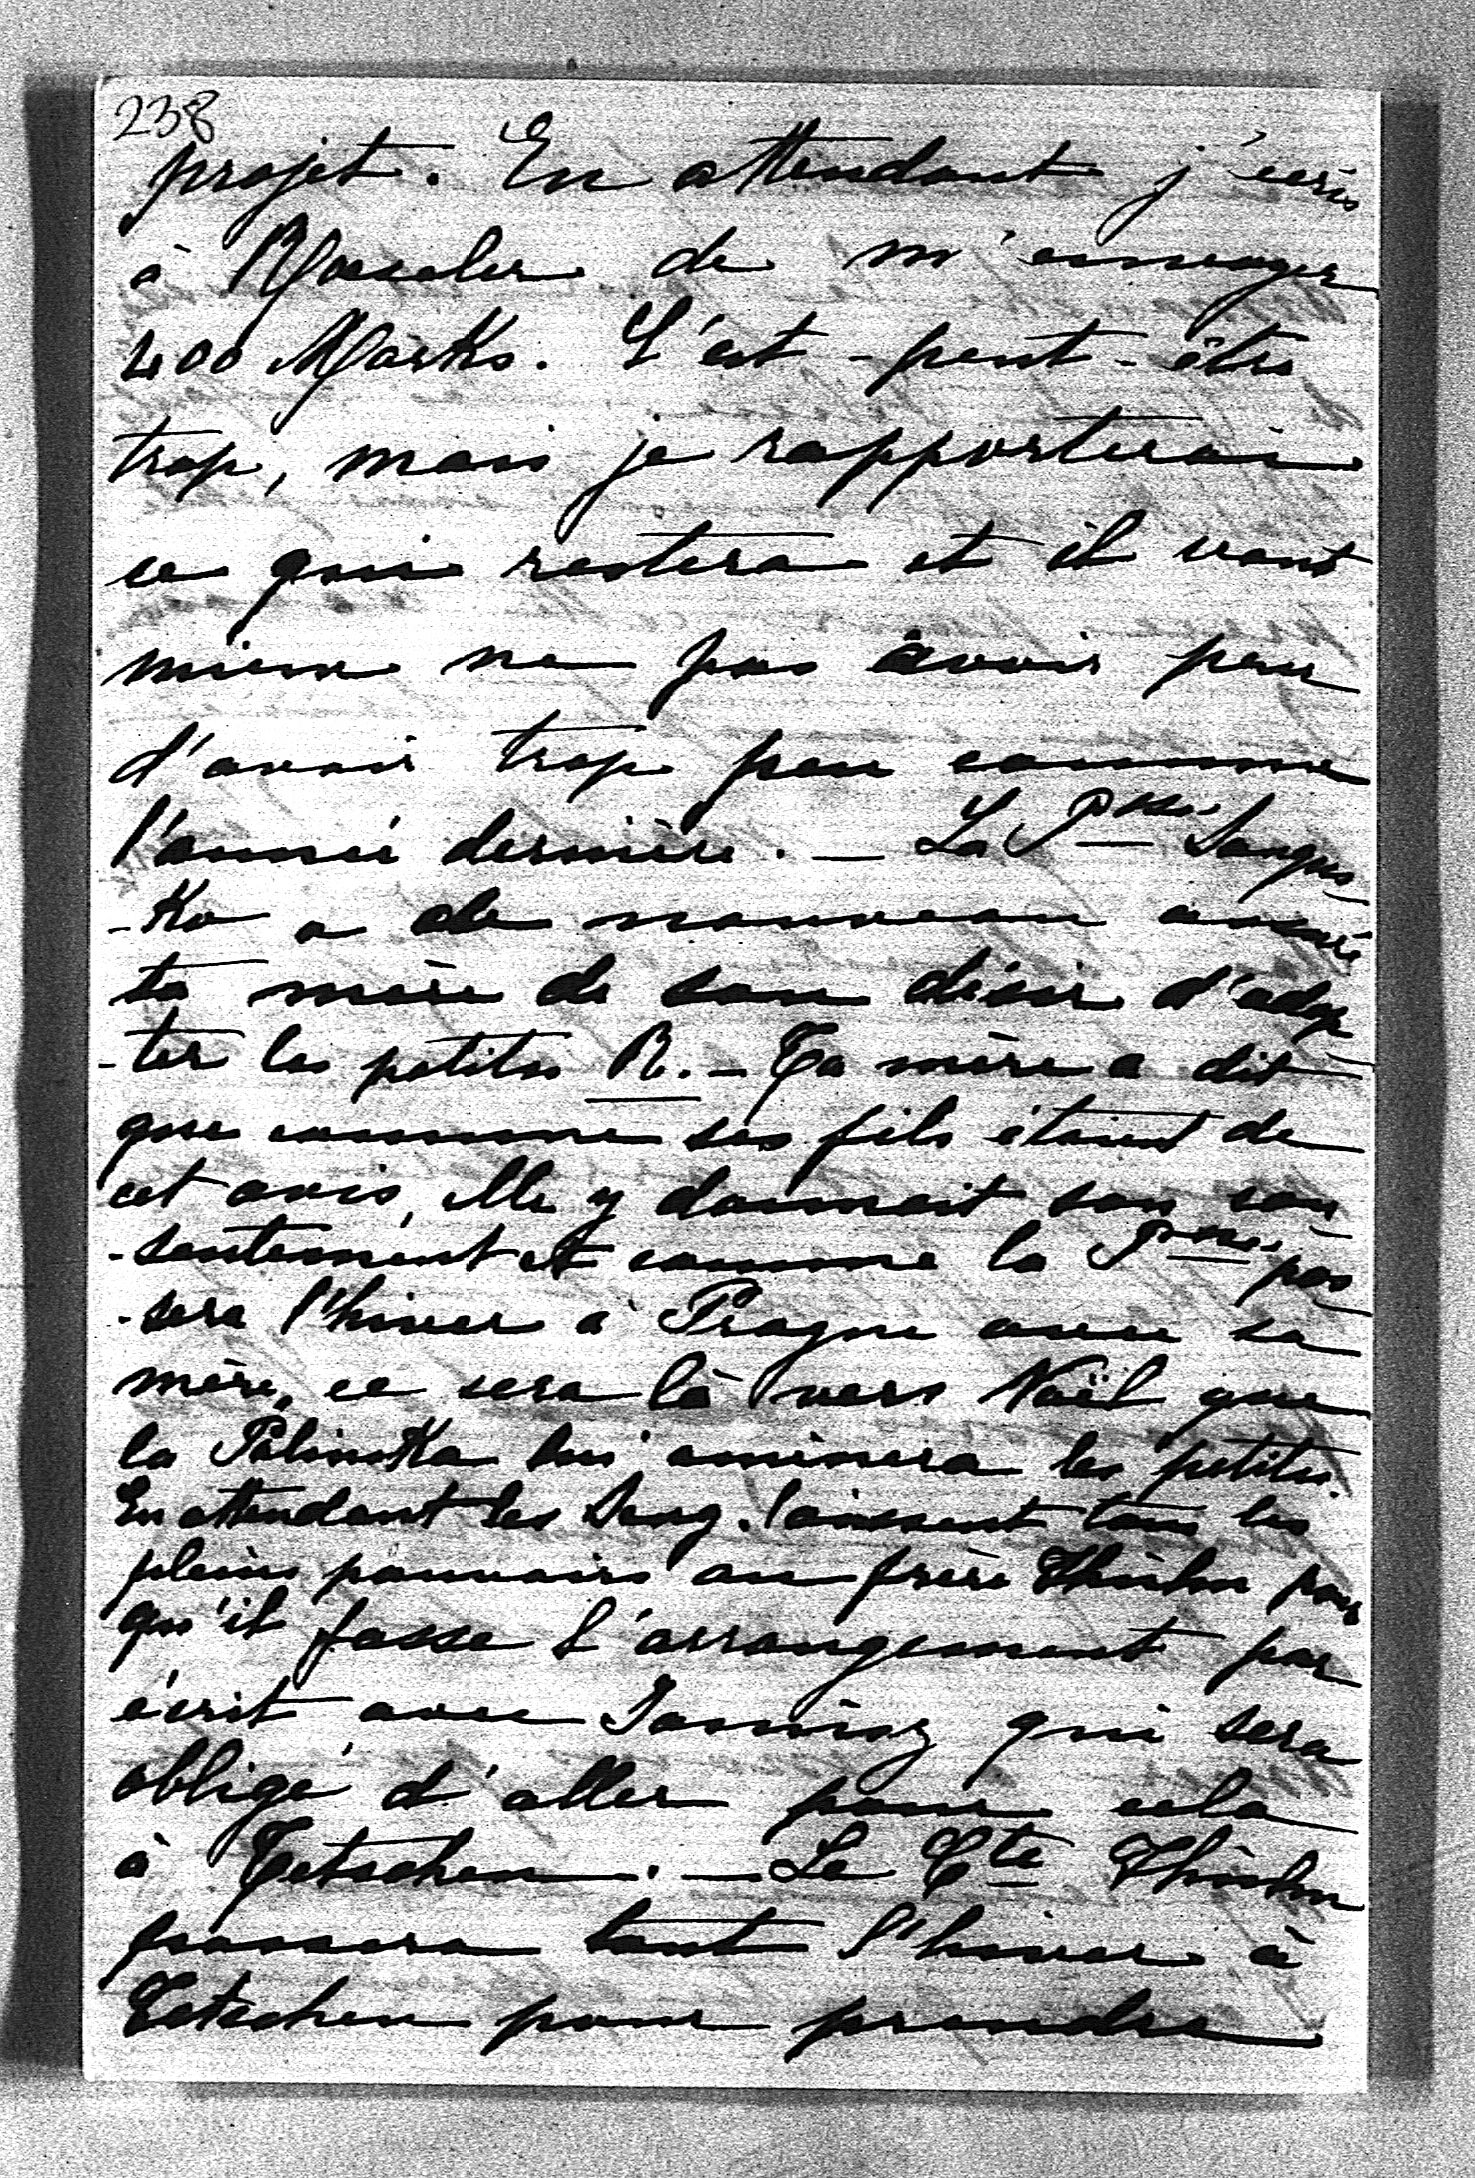 238
projet. En attendant j'écris
à Roesler de m'envoyer
400 Marks. C'est-peut-être
trop, mais je rapporterai
ce qui restera et il vaut
mieux ne pas avoir peur
d'avoir trop peu comme
l'année dernière. — La Pcesse Sangus
-ko a de nouveau assuré
ta mère de son désir d'adop
-ter les petites R. — Ta mère a dit
que comme ses fils étaient de
cet avis, elle y donnait son con
-sentement et comme la Pcesse pas
-sera l'hiver à Prague avec sa
mère, ce sera là vers Noël que
la Palinska lui amènera les petites.
En attendant les Sang. laissent tous les
pleins pouvoirs au frère Thun pour
qu'il fasse l'arrangement par
écrit avec qui sera
obligé d'aller pour cela
à Tetschen. — Le Cte Thun
passera tout l'hiver à
Tetschen pour prendre